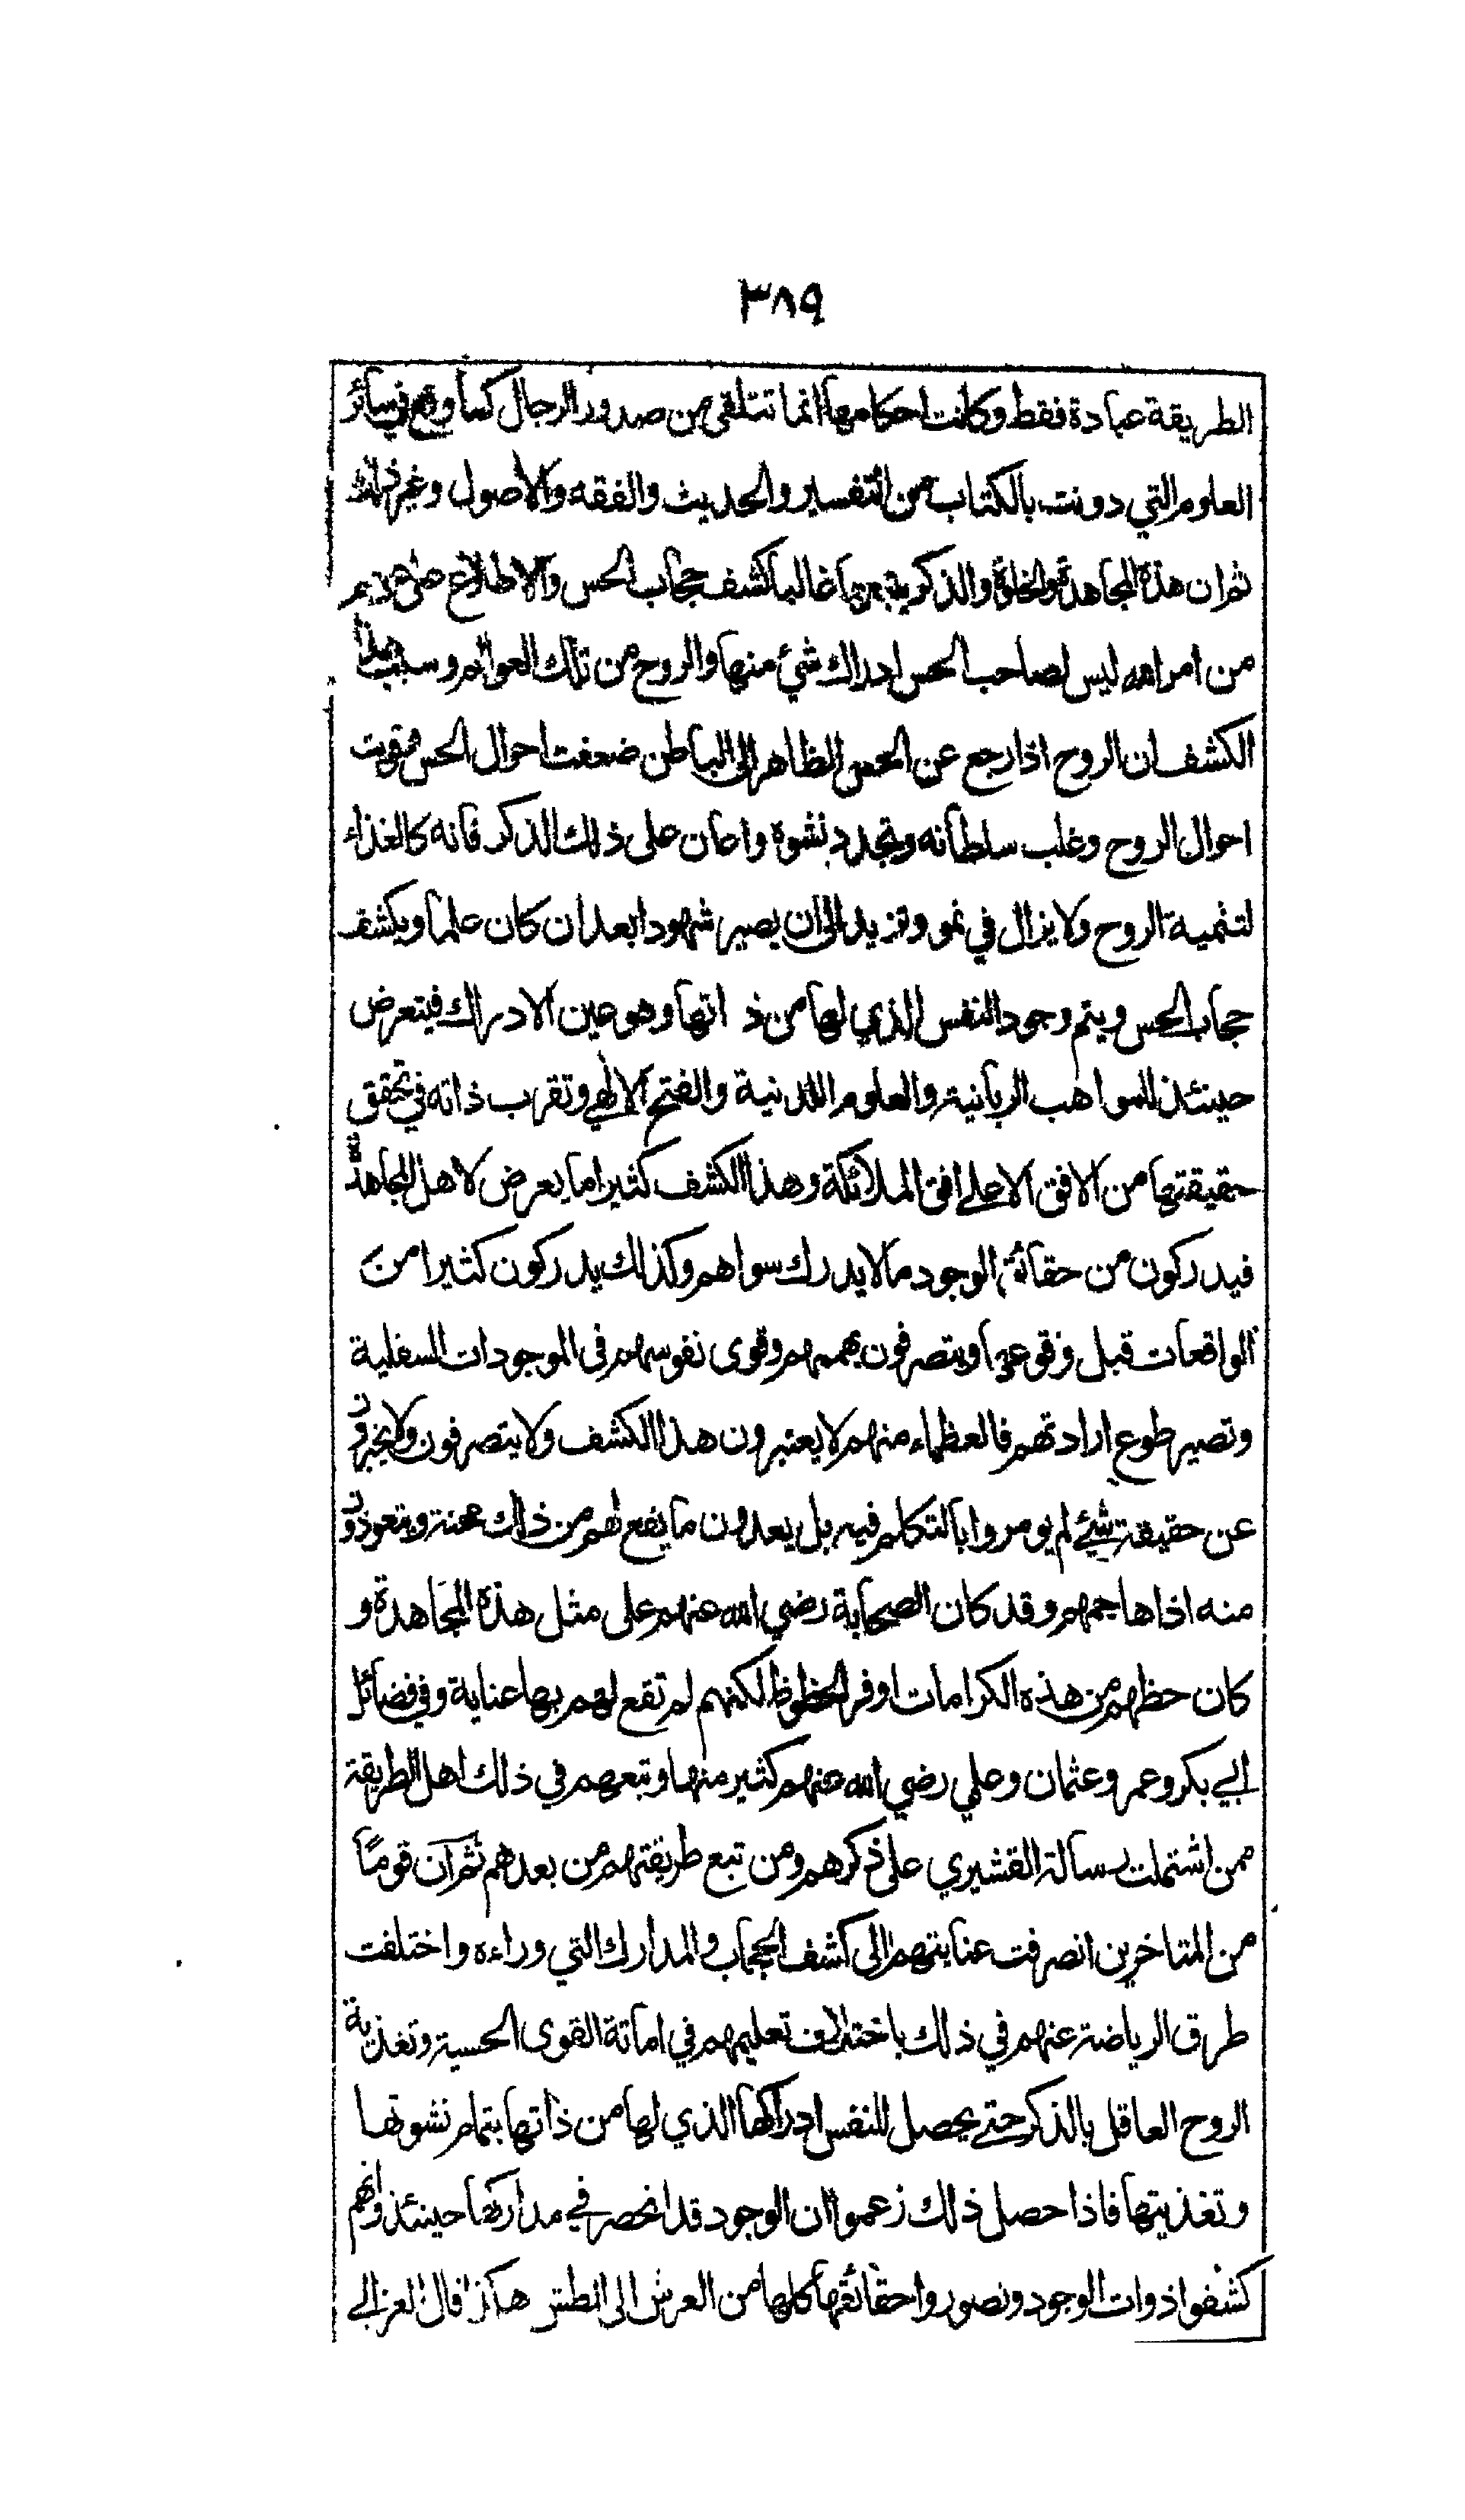 ٣٨٩
الطريقة عبادة فقط وكانت احكامها انما تتلقى من صدور الرجال كما وقع في سائر
العلوم التي دونت بالكتاب من التفسير والحديث والفقه والاصول وغير ذلك
ثم ان هذه المجاهدة والخلوة والذكر يتبعها غالبا كشف حجاب الحس والاطلاع على عوالم
من امر الله ليس لصاحب الحس ادراك شئ منها والروح من تلك العوالم وسبب هذا
الكشف ان الروح اذا رجع عن الحس الظاهر الى الباطن ضعفت احوال الحس وقويت
احوال الروح وغلب سلطانه وتجدد نشوه واعان على ذلك الذكر فانه كالغذاء
لتنمية الروح ولا يزال في نمو وتزيد الى ان يصير شهودا بعد ان كان علما ويكشف
حجاب الحس ويتم وجود النفس الذي لها من ذاتها وهو عين الادراك فيتعرض
حينئذ للمواهب الربانية والعلوم اللدنية والفتح الالهي وتقرب ذاته في تحقق
حقيقتها من الافق الاعلى افق الملائكة وهذا الكشف كثيرا ما يعرض لاهل المجاهدة
فيدركون من حقائق الوجود مالا يدرك سواهم وكذلك يدركون كثيرا من
الواقعات قبل وقوعها ويتصرفون بهممهم وقوى نفوسهم فى الموجودات السفلية
وتصير طوع ارادتهم فالعظماء منهم لا يعتبرون هذا الكشف ولا يتصرفون ولا يخبرون
عن حقيقة شئ لم يومروا بالتكلم فيه بل يعدون ما يقع لهم من ذلك محنة ويتعوذون
منه اذا هاجمهم وقد كان الصحابة رضي الله عنهم على مثل هذه المجاهدة و
كان حظهم من هذه الكرامات اوفر الحظوظ لكنهم لم تقع لهم بها عناية وفي فضائل
ابي بكر وعمر وعثمان وعلي رضي الله عنهم كثير منها وتبعهم في ذلك اهل الطريقة
ممن اشتملت رسالة القشيري على ذكرهم ومن تبع طريقتهم من بعدهم ثم آن قومًا
من المتاخرين انصرفت عنايتهم الى كشف الحجاب والمدارك التي وراءه واختلفت
طرق الرياضة عنهم في ذلك باختلاف تعليمهم في اماتة القوى الحسية وتغذية
الروح العاقل بالذكر حتى يحصل للنفس ادراكها الذي لها من ذاتها بتمام نشوتها
وتغذيتها فاذا حصل ذلك زعموا ان الوجود قد انحصر في مداركها حينئذ وانهم
كشفوا ذوات الوجود وتصوروا حقائقها كلها من العرش الى الطش هكذا قال الغزالي